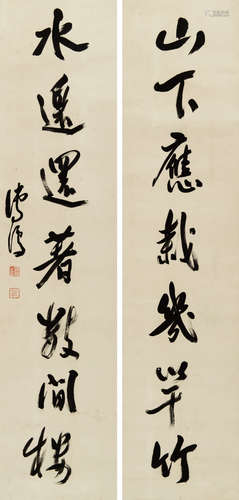 山下應栽幾竿竹
水邊還著數間樓